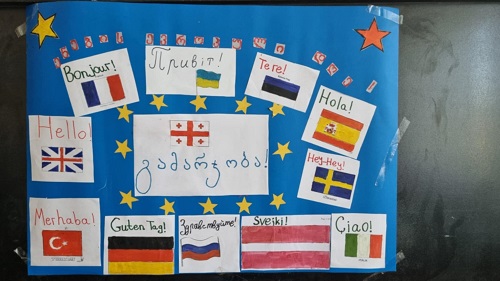 Bonjour!
Привіт!
Tere!
Hola!
Hello!
გამარჯობა!
Hey-Hey!
Merhaba!
Guten Tag!
Здравствуйте!
Sveiki!
Ciao!